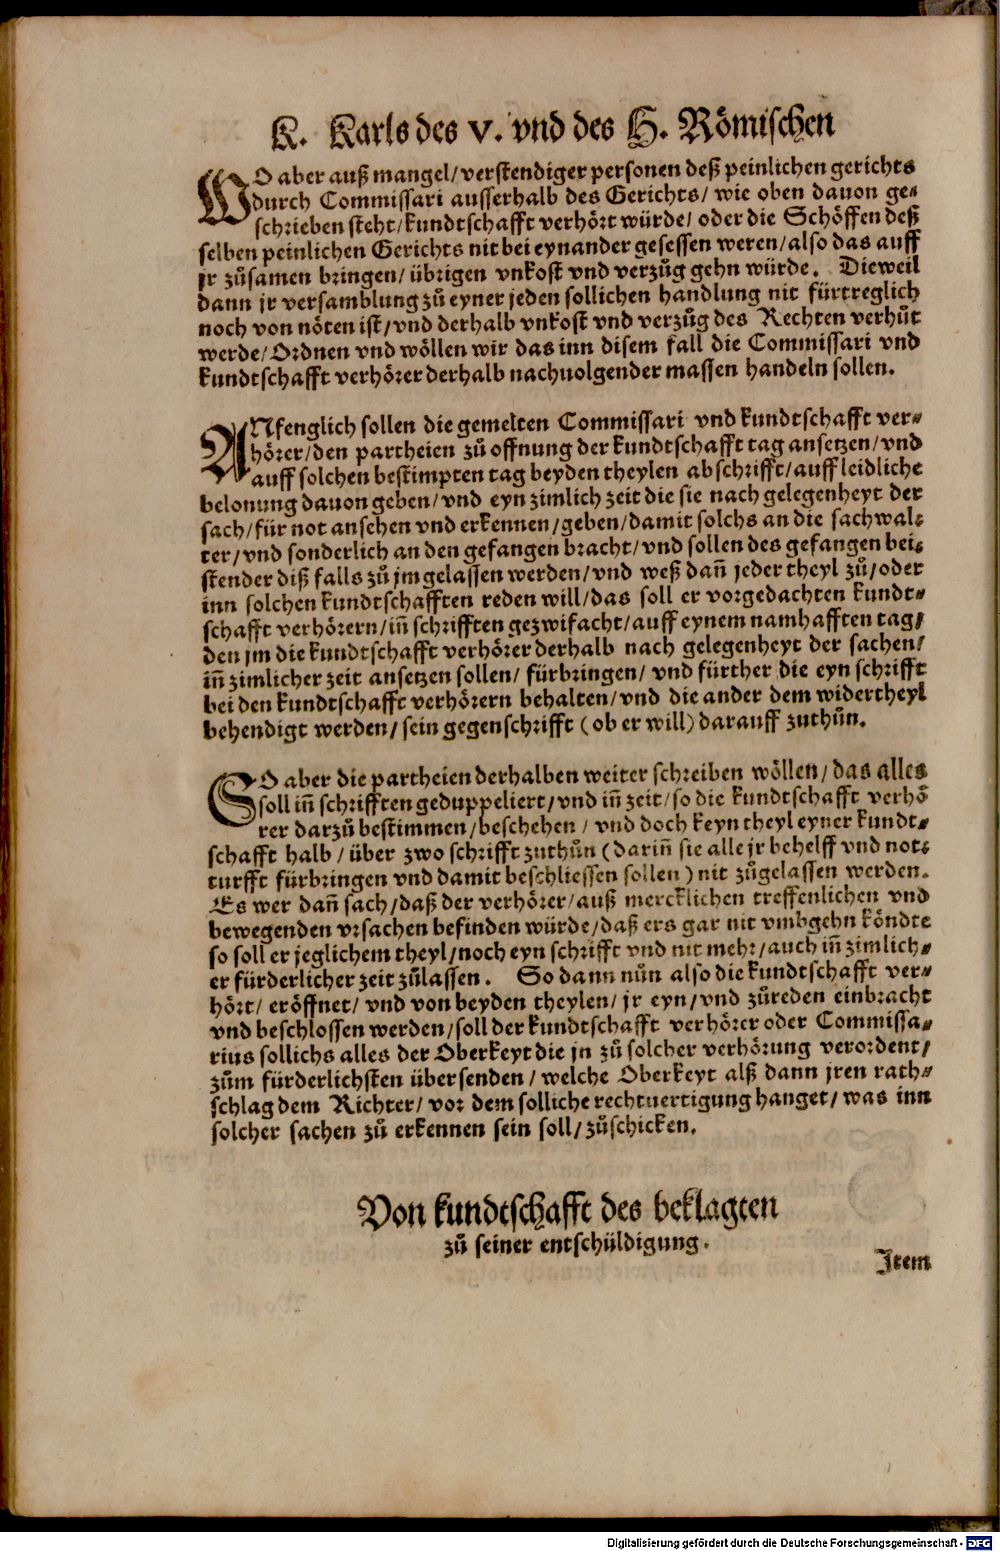 K. Karls des V. vnd des H. Römischen
WO aber auß mangel/ verstendiger personen deß peinlichen gerichts
durch Commissari ausserhalb des Gerichts/ wie oben dauon ge⸗
schrieben steht/ kundtschafft verhört würde/ oder die Schöffen deß
selben peinlichen Gerichts nit bei eynander gesessen weren/ also das auff
jr zůsamen bringen/ übrigen vnkost vnd verzůg gehn würde. Dieweil
dann jr versamblung zů eyner jeden sollichen handlung nit fürtreglich
noch von nöten ist/ vnd derhalb vnkost vnd verzůg des Rechten verhůt
werde/ Ordnen vnd wöllen wir das inn disem fall die Commissari vnd
kundtschafft verhörer derhalb nachuolgender massen handeln sollen.
ANfenglich sollen die gemelten Commissari vnd kundtschafft ver⸗
hörer/ den partheien zů offnung der kundtschafft tag ansetzen/ vnd
auff solchen bestimpten tag beyden theylen abschrifft/ auff leidliche
belonung dauon geben/ vnd eyn zimlich zeit die sie nach gelegenheyt der
sach/ für not ansehen vnd erkennen/ geben/ damit solchs an die sachwal⸗
ter/ vnd sonderlich an den gefangen bracht/ vnd sollen des gefangen bei⸗
stender diß falls zů jm gelassen werden/ vnd weß dañ jeder theyl zů/ oder
inn solchen kundtschafften reden will/ das soll er vorgedachten kundt⸗
schafft verhörern/ iñ schrifften gezwifacht/ auff eynem namhafften tag/
den jm die kundtschafft verhörer derhalb nach gelegenheyt der sachen/
iñ zimlicher zeit ansetzen sollen/ fürbringen/ vnd fürther die eyn schrifft
bei den kundtschafft verhörern behalten/ vnd die ander dem widertheyl
behendigt werden/ sein gegenschrifft (ob er will) darauff zuthůn.
SO aber die partheien derhalben weiter schreiben wöllen/ das alles
soll iñ schrifften geduppeliert/ vnd iñ zeit/ so die kundtschafft verhö
rer darzů bestimmen/ beschehen/ vnd doch keyn theyl eyner kundt⸗
schafft halb/ über zwo schrifft zuthůn (dariñ sie alle jr behelff vnd not⸗
turfft fürbringen vnd damit beschliessen sollen) nit zůgelassen werden.
Es wer dañ sach/ daß der verhörer/ auß mercklichen treffenlichen vnd
bewegenden vrsachen befinden würde/ daß ers gar nit vmbgehn köndte
so soll er jeglichem theyl/ noch eyn schrifft vnd nit mehr/ auch iñ zimlich⸗
er fürderlicher zeit zůlassen. So dann nůn also die kundtschafft ver⸗
hört/ eröffnet/ vnd von beyden theylen/ jr eyn/ vnd zůreden einbracht
vnd beschlossen werden/ soll der kundtschafft verhörer oder Commissa⸗
rius sollichs alles der Oberkeyt die jn zů solcher verhörung verordent/
zům fürderlichsten übersenden/ welche Oberkeyt alß dann jren rath⸗
schlag dem Richter/ vor dem solliche rechtuertigung hanget/ was inn
solcher sachen zů erkennen sein soll/ zůschicken.
Von kundtschafft des beklagten
zů seiner entschüldigung.
Item
Digitalisierung gefördert durch die Deutsche Forschungsgemeinschaft - DFG